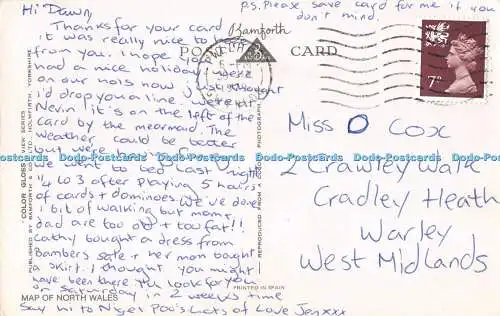 p.s. Please save card for me if you
don't mind.
Hi Dawn,
Thanks for your card
it was really nice to
from you. I hope you
had a nice holiday. We're
on our hols now just thought
I'd drop you a line. We're at
Nevin it's on the left of the
card by the meormaid. The
weather could be better
but were
we went to bed last night
1/4 to 3 after playing 5 hours
of cards + dominoes. We've done
1 bit of walking but mom +
Dad are too old + too fat!!
Cathy bought a dress from
bambers sale + her mom bought
a skirt. I thought you might
have been there. I'll look for you
on Saturday in 2 weeks time
Say hi to Niger Poo's Lots of Love Jenxxx
Bamforth
POST CARD
7P
Miss D Cox
2 Crawley Walk
Cradley Heath
Warley
West Midlands
"COLOR GLOSS" VIEW SERIES
PUBLISHED BY BAMFORTH & CO. LTD. HOLMFIRTH, YORKSHIRE
REPRODUCED FROM A COLOUR PHOTOGRAPH
MAP OF NORTH WALES
PRINTED IN SPAIN
Dodo-Postcards Dodo-Postcards Dodo-Postcards Dodo-Postcards Dodo-Postcards Dodo-Postcards